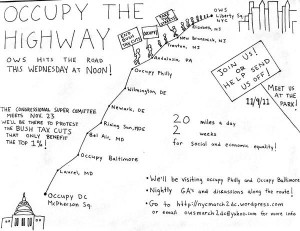 OCCUPY THE
HIGHWAY
OWS HITS THE ROAD
THIS WEDNESDAY AT NOON!
OWS
Liberty Sq.
NYC
Elizabeth, NJ
New Brunswick, NJ
Trenton, NJ
Andalusia, PA
Occupy Philly
Wilmington, DE
Newark, DE
Rising Sun, MD
Bel Air, MD
Occupy Baltimore
Laurel, MD
Occupy DC
McPherson Sq.
JOIN US!
OR
HELP SEND
US OFF!
MEET US
AT THE
PARK!
11/9/11
THE CONGRESSIONAL SUPER COMITTEE
MEETS NOV. 23
WE'LL BE THERE TO PROTEST
THE BUSH TAX CUTS
THAT ONLY BENEFIT
THE TOP 1%!
20 miles a day
2 weeks
for social and economic equality!
• We'll be visiting occupy Philly and Occupy Baltimore
• Nightly GA's and discussions along the route!
• Go to http://nycmarch2dc.wordpress.com
or email owsmarch2dc@yahoo.com for more info